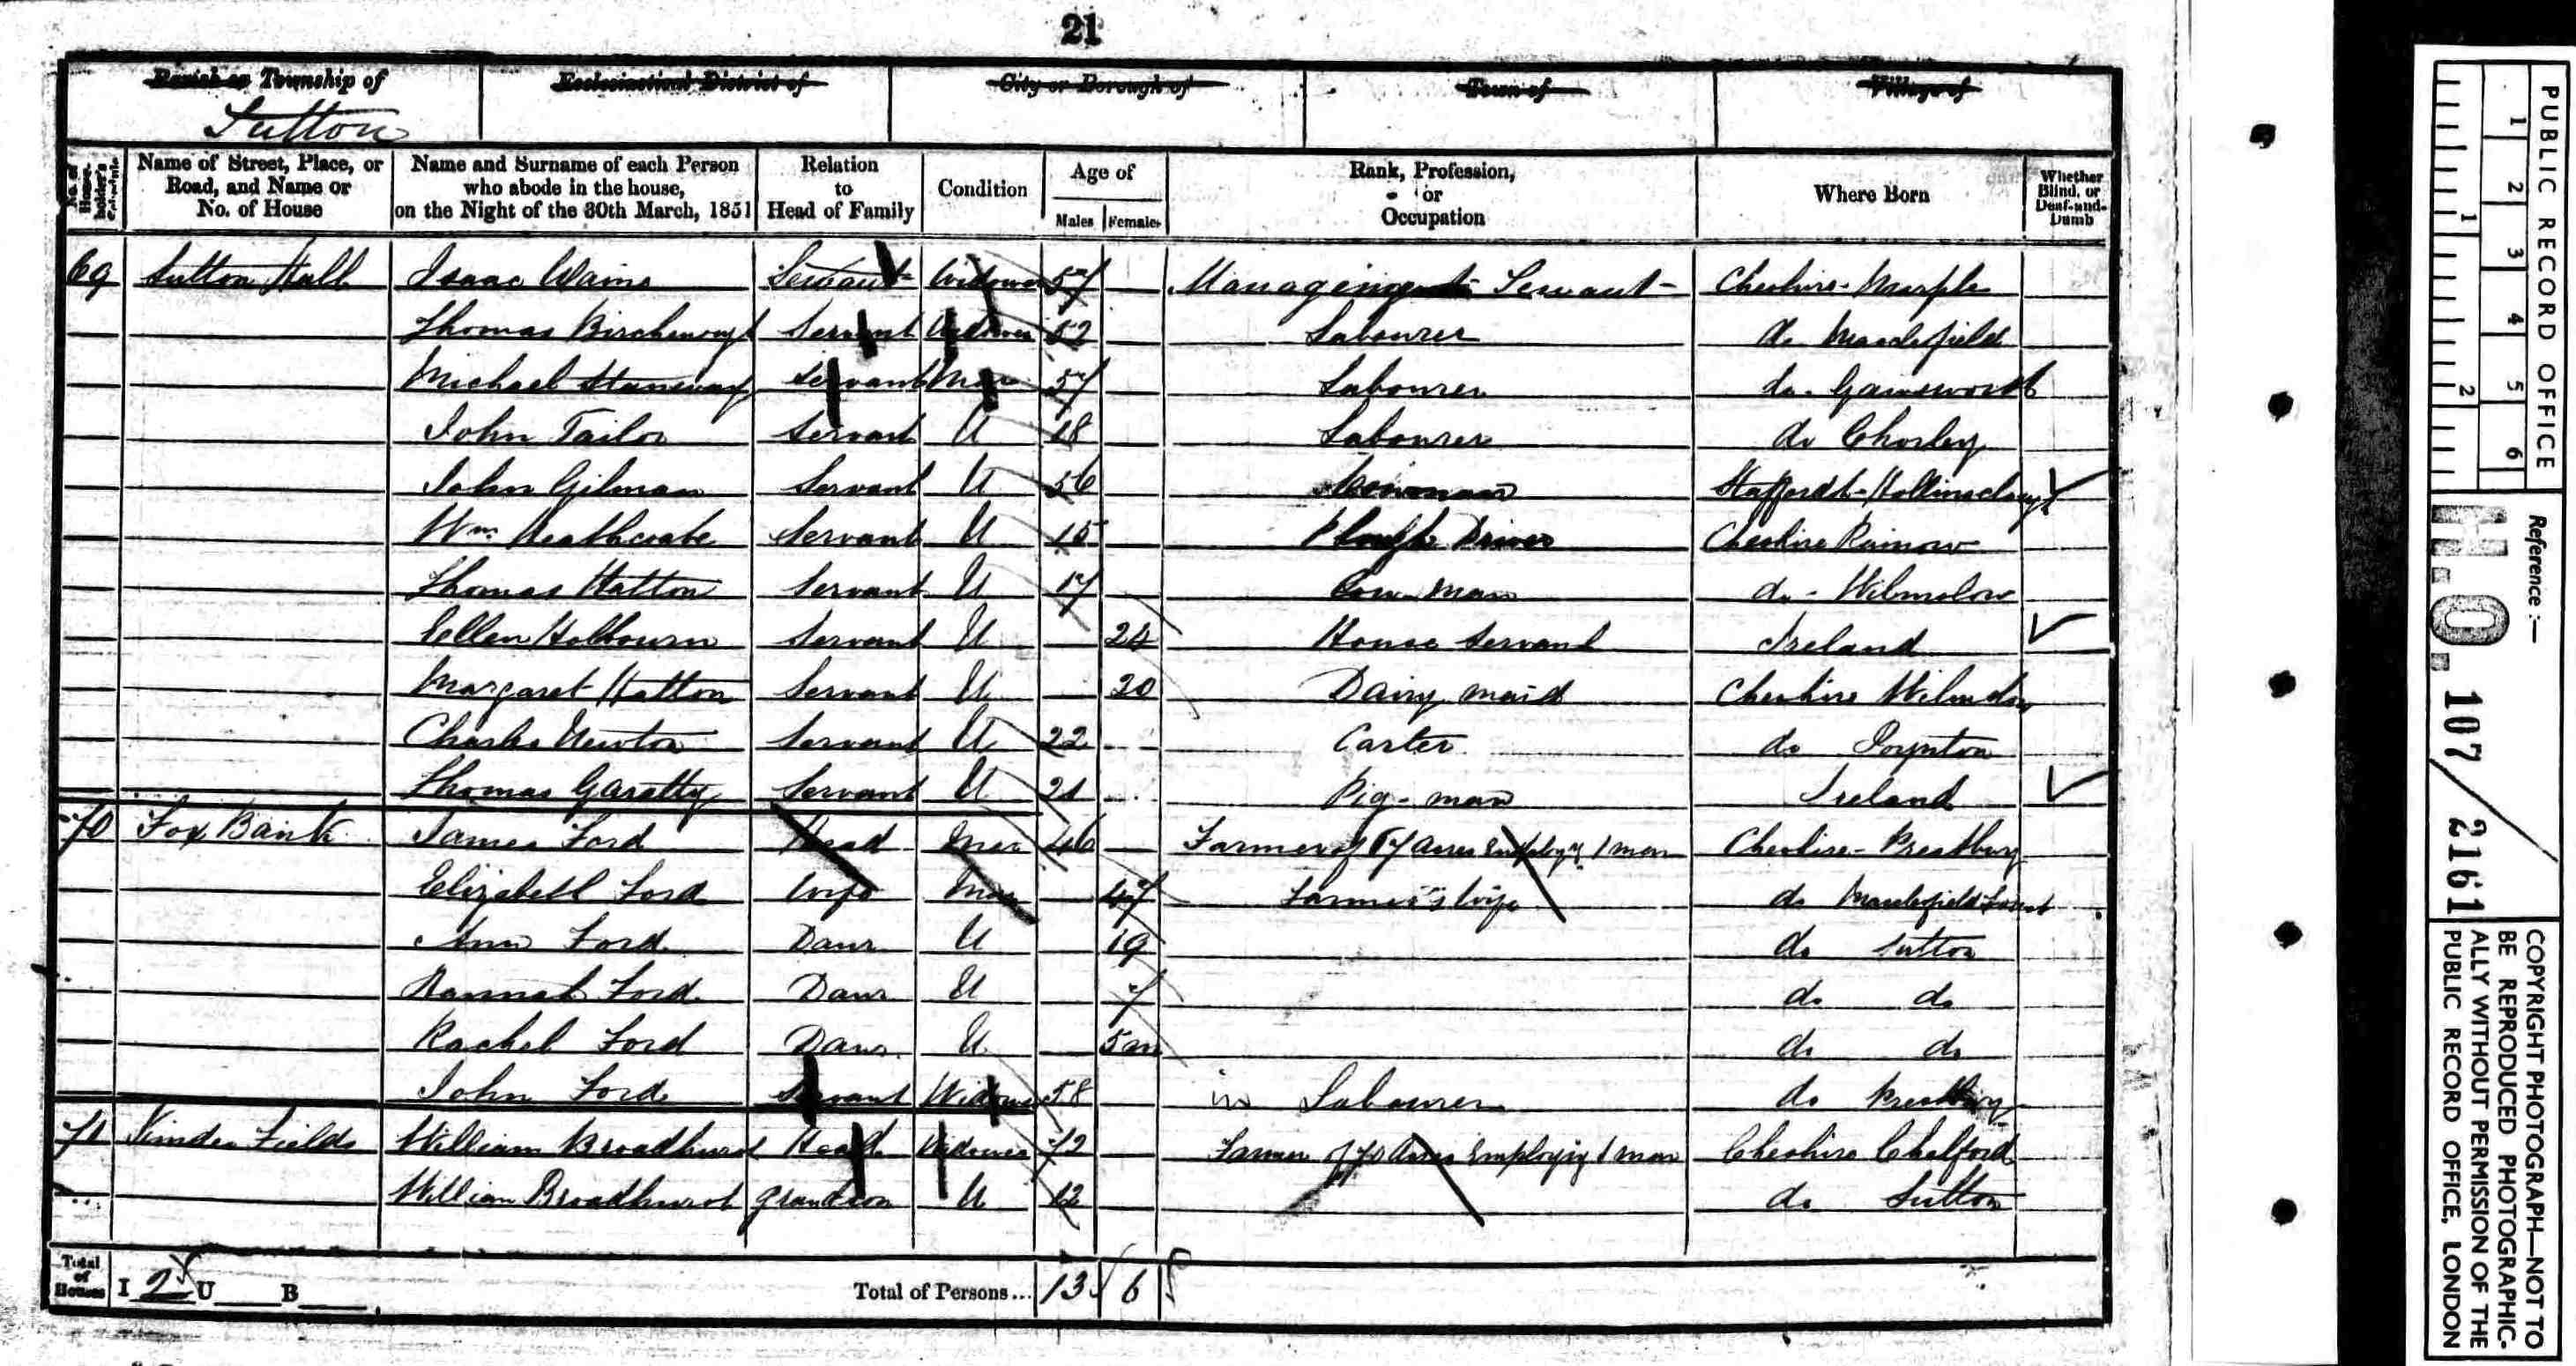 21
Parish or Township of Ecclesiastical District of City or Borough of Town of Village of
Sutton
No. of House-holder's Schedule Name of Street, Place, or Road, and Name or No. of House Name and Surname of each Person who abode in the house, on the Night of the 30th March, 1851 Relation to Head of Family Condition Age of Males Females Rank, Profession, or Occupation Where Born Whether Blind, or Deaf-and-Dumb
69 Sutton Hall Isaac Wains Servant Widower 57 Servant Cheshire Marple
Thomas Birchenough Servant Widower 52 Labourer do Macclesfield
Michael Servant Mar 57 Labourer do Gawsworth
John Tailor Servant U 18 Labourer do Chorley
John Gilman Servant U 56 Staffords Hollinsclough
Wm Heathcoate Servant U 15 Plough Driver Cheshire Rainow
Thomas Hatton Servant U 17 Cow-man do Wilmslow
Ellen Holbourn Servant U 24 House Servant Ireland
Margaret Hatton Servant U 20 Dairy maid Cheshire Wilmslow
Charles Newton Servant U 22 Carter do Poynton
Thomas Garatty Servant U 21 Pig-man Ireland
70 Fox Bank James Ford Head Mar 46 Farmer of Acres Employg 1 man Cheshire Prestbury
Elizabeth Ford Wife Mar 47 Farmer's Wife do Macclesfield Forest
Ann Ford Daur U 19 do Sutton
Hannah Ford Daur U 7 do do
Rachel Ford Daur U 5m do do
John Ford Servant Widower 58 Labourer do Prestbury
71 Fields William Broadhurst Head Widower 72 Farmer of 70 Acres Employing 1 man Cheshire Chelford
William Broadhurst Grandson U 12 do Sutton
Total of Houses I 2 U B Total of Persons... 13 6
PUBLIC RECORD OFFICE
1 2 3 4 5 6
1 2
Reference :-
H.O. 107/2161
COPYRIGHT PHOTOGRAPH—NOT TO
BE REPRODUCED PHOTOGRAPHIC-
ALLY WITHOUT PERMISSION OF THE
PUBLIC RECORD OFFICE, LONDON